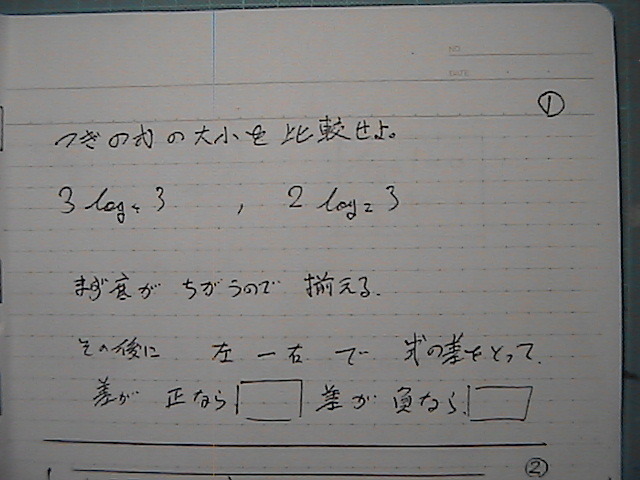 NO.
DATE
①
つぎの式の大小を比較せよ。
3 log₄ 3 , 2 log₂ 3
まず底がちがうので揃える.
その後に 左 - 右 で 式の差をとって.
差が 正なら 差が 負なら.
②